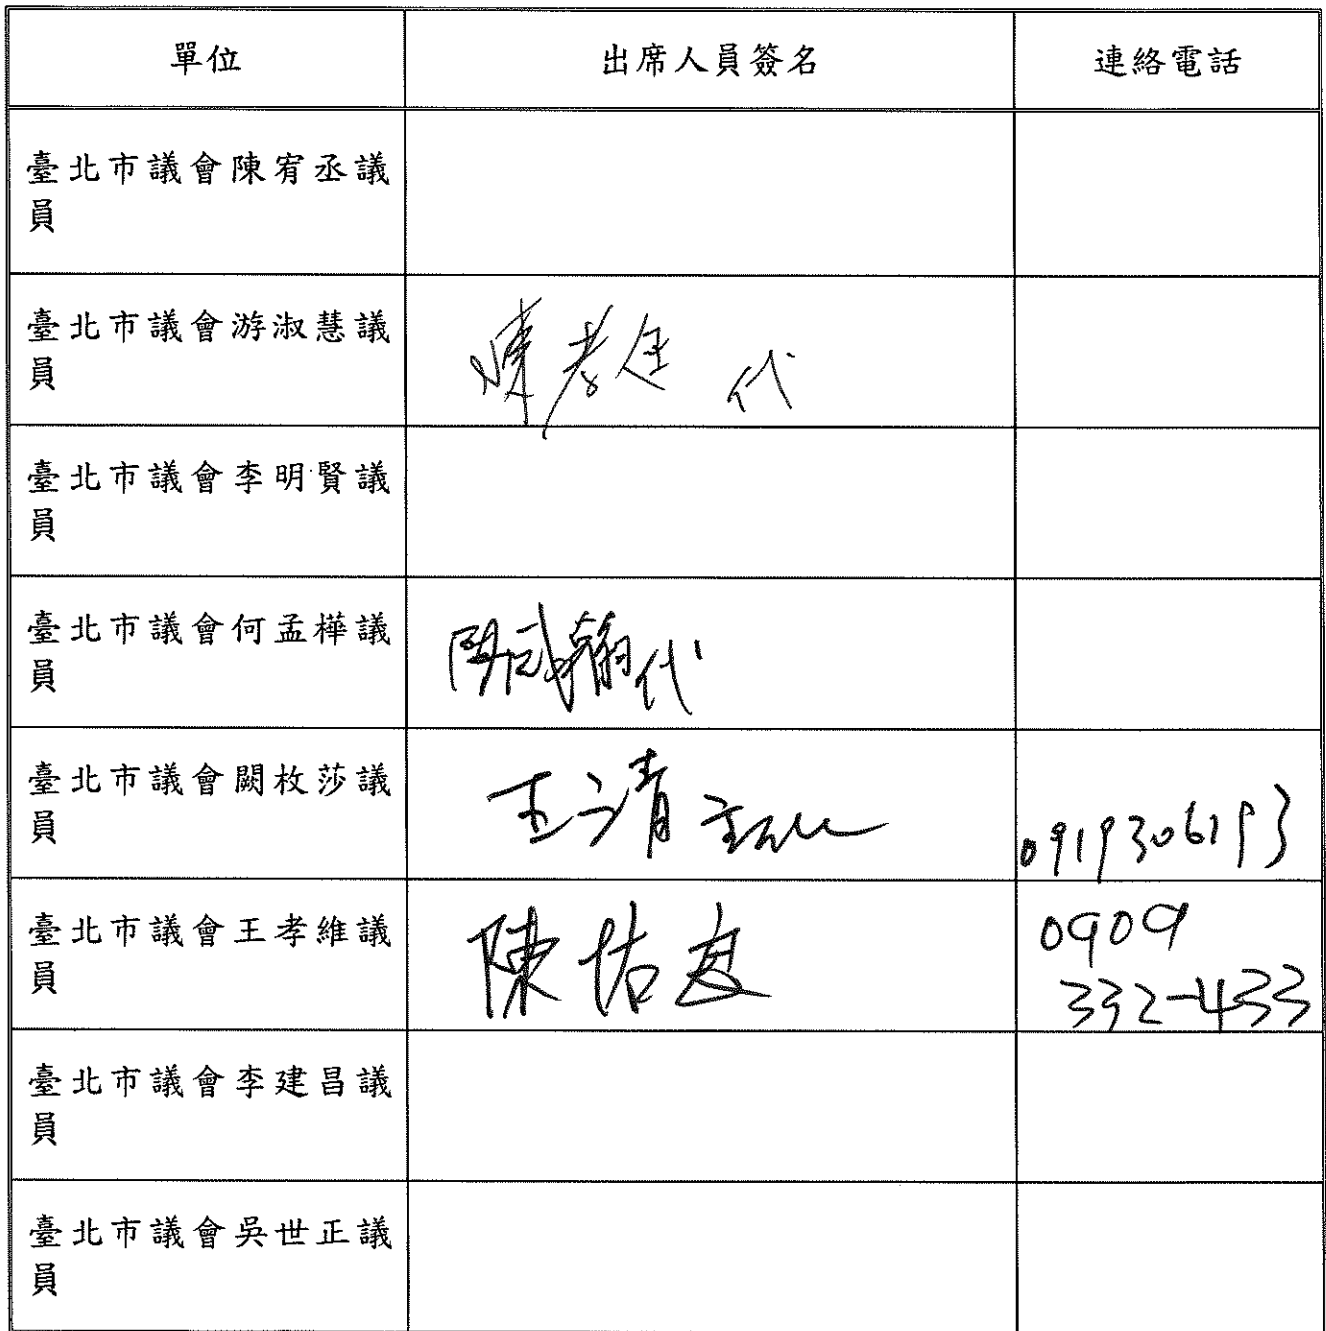 單位 出席人員簽名 連絡電話
臺北市議會陳宥丞議
員
臺北市議會游淑慧議
員
陳孝 代
臺北市議會李明賢議
員
臺北市議會何孟樺議
員
代
臺北市議會闕枚莎議
員
王 青 主 0919306193
臺北市議會王孝維議
員
陳 0909
332-433
臺北市議會李建昌議
員
臺北市議會吳世正議
員